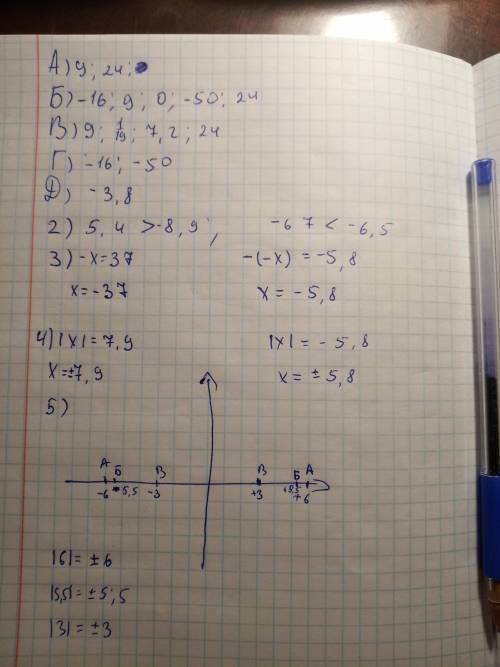 А) 9; 24;
Б) -16; 9; 0; -50; 24
В) 9; 1/19; 7,2; 24
Г) -16; -50
Д) -3,8
2) 5,4 > -8,9; -6 7 < -6,5
3) -x = 37 -(-x) = -5,8
x = -37 x = -5,8
4) |x| = 7,9 |x| = -5,8
x = ±7,9 x = ±5,8
5)
А Б В В Б А
-6 -5,5 -3 +3 +5,5 +6
|6| = ±6
|5,5| = ±5,5
|3| = ±3